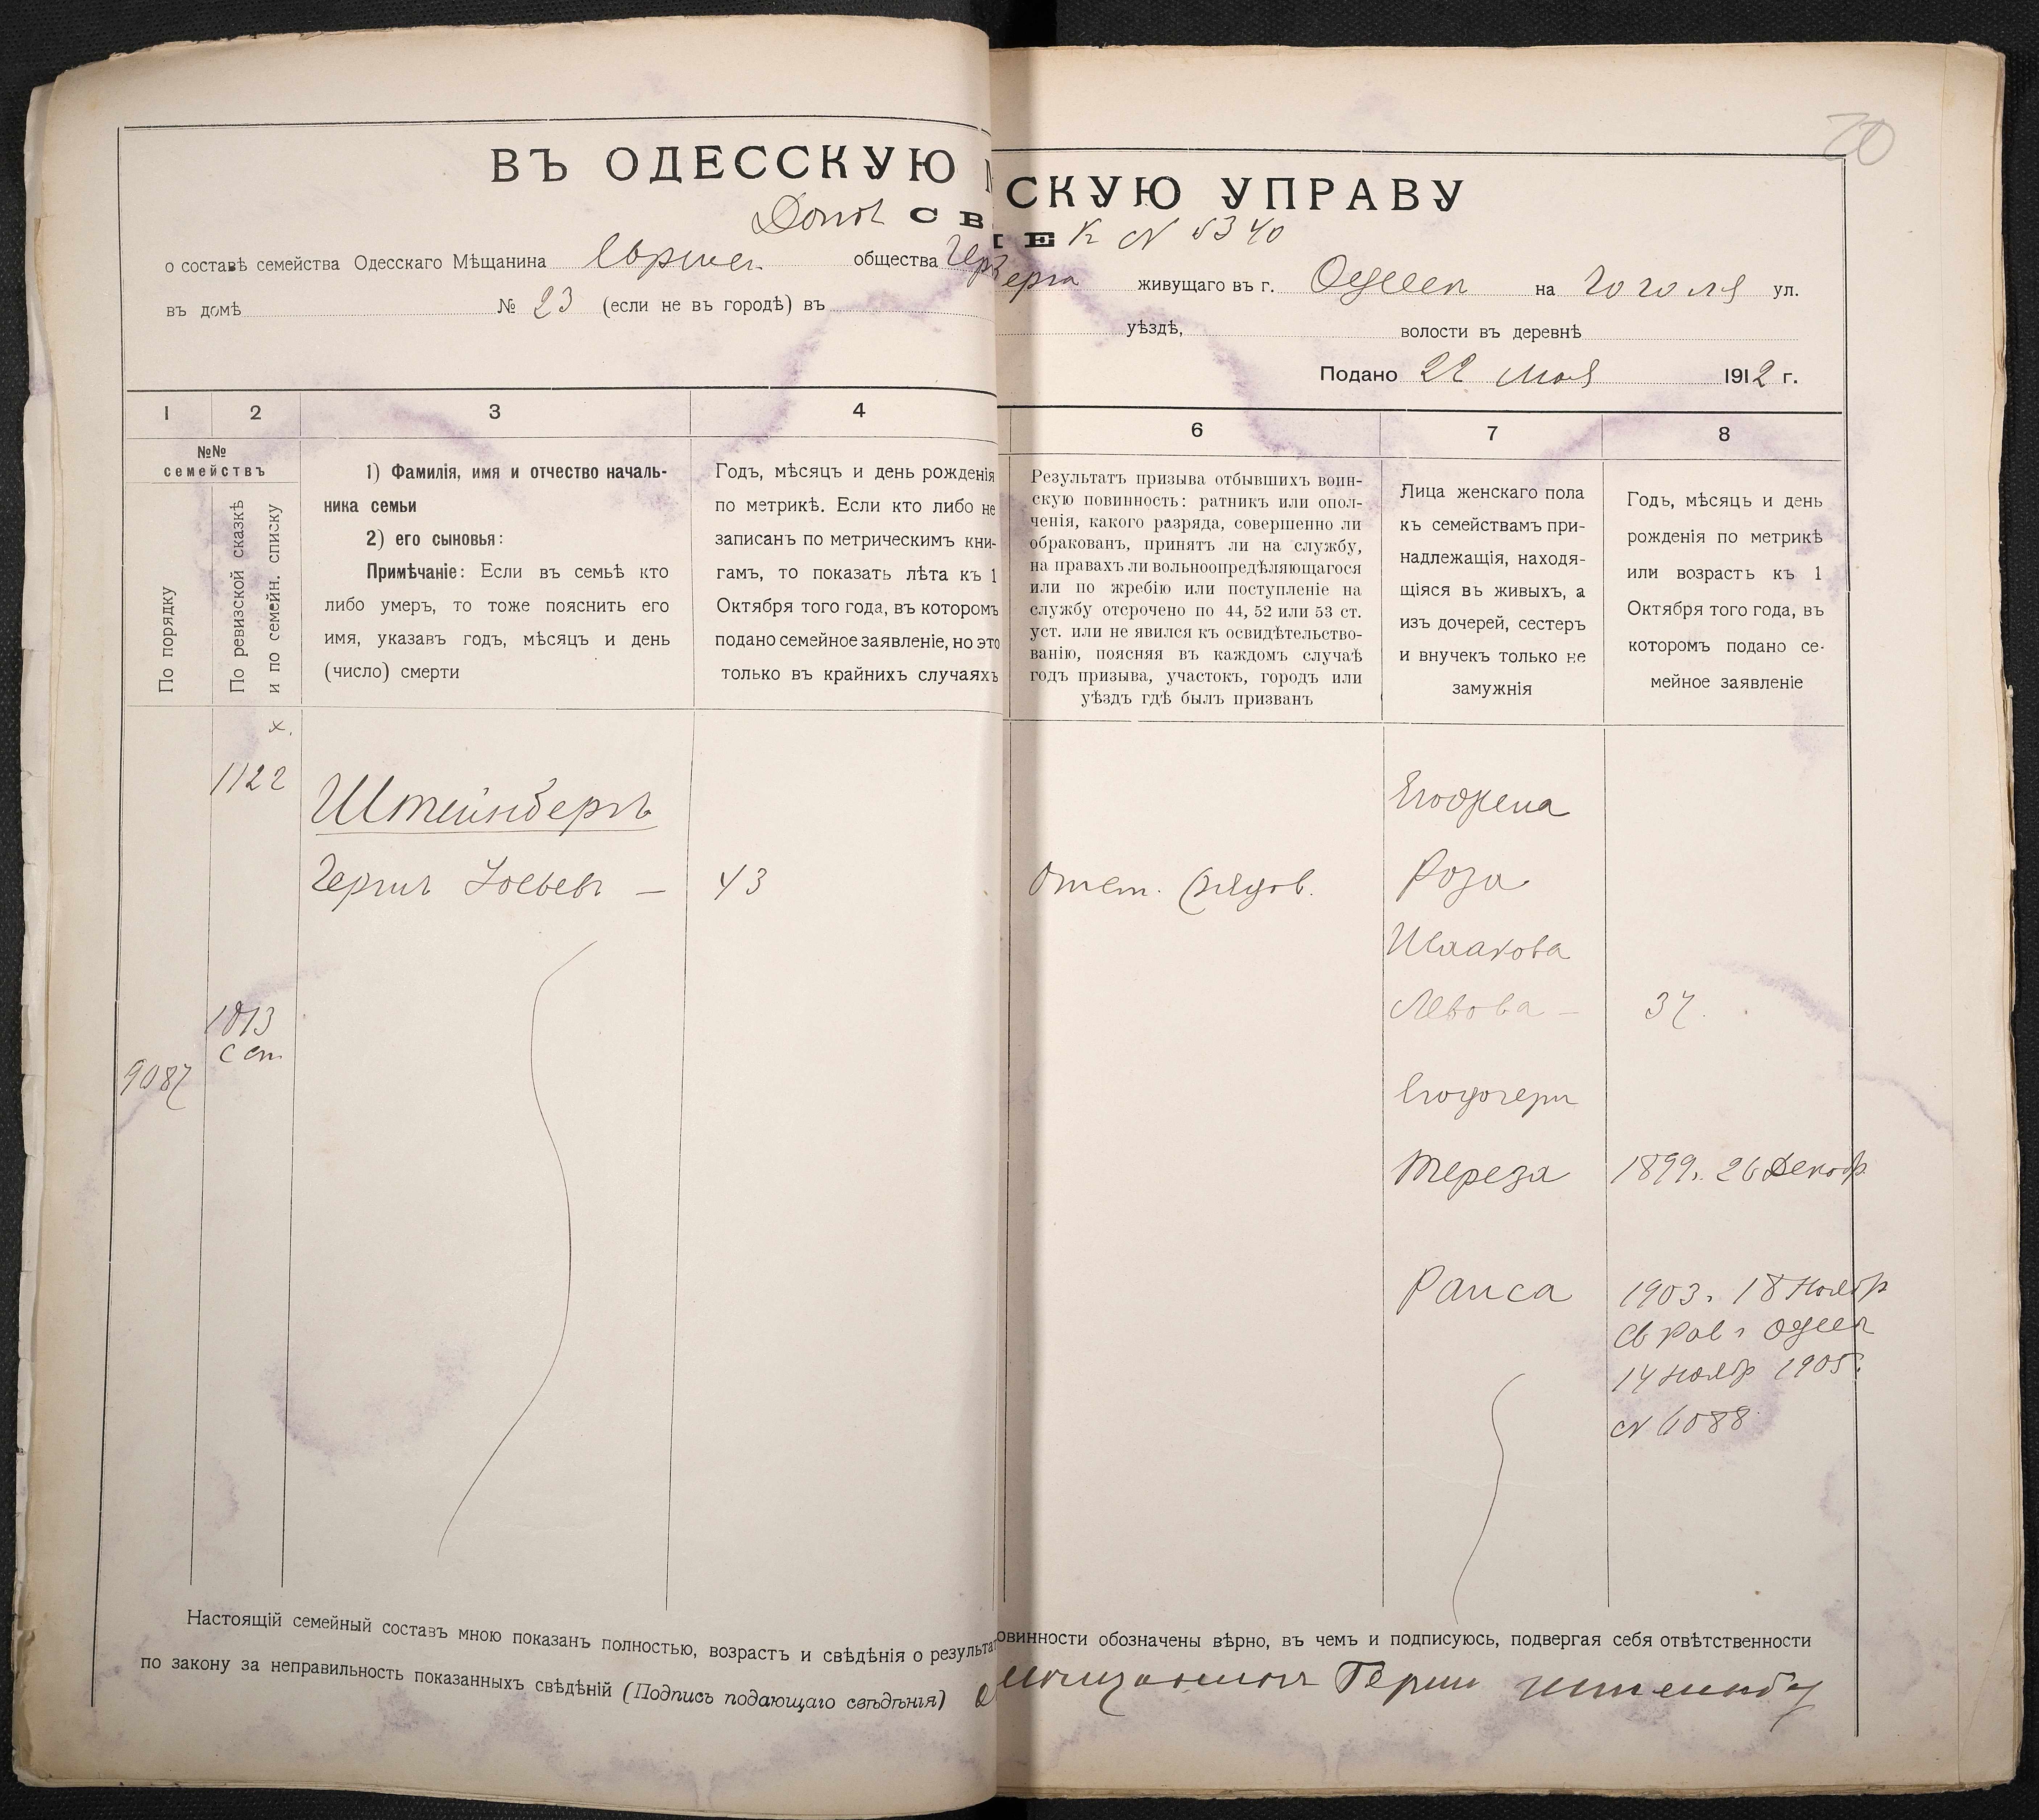 20
ВЪ ОДЕССКУЮ
СКУЮ УПРАВУ
СВ
К № 5340
о составѣ семейства Одесскаго Мѣщанина Еврейск. общества живущаго въ г. Одессѣ на Гоголя ул.
въ домѣ № 23 (если не въ городѣ) въ уѣздѣ, волости въ деревнѣ
Подано 22 Мая 1912 г.
1 2 3 4 6 7 8
№№ семействъ
По порядку
По ревизской сказкѣ
и по семейн. списку
1) Фамилія, имя и отчество началь-
ника семьи
2) его сыновья:
Примѣчаніе: Если въ семьѣ кто
либо умеръ, то тоже пояснить его
имя, указавъ годъ, мѣсяцъ и день
(число) смерти
Годъ, мѣсяцъ и день рожденія
по метрикѣ. Если кто либо не
записанъ по метрическимъ кни-
гамъ, то показать лѣта къ 1
Октября того года, въ которомъ
подано семейное заявленіе, но это
только въ крайнихъ случаяхъ
Результатъ призыва отбывшихъ воин-
скую повинность: ратникъ или опол-
ченія, какого разряда, совершенно ли
обракованъ, принятъ ли на службу,
на правахъ ли вольноопредѣляющагося
или по жребію или поступленіе на
службу отсрочено по 44, 52 или 53 ст.
уст. или не явился къ освидѣтельство-
ванію, поясняя въ каждомъ случаѣ
годъ призыва, участокъ, городъ или
уѣздъ гдѣ былъ призванъ
Лица женскаго пола
къ семействамъ при-
надлежащія, находя-
щіяся въ живыхъ, а
изъ дочерей, сестеръ
и внучекъ только не
замужнія
Годъ, мѣсяцъ и день
рожденія по метрикѣ
или возрастъ къ 1
Октября того года, въ
которомъ подано се-
мейное заявленіе
х.
1122
Штейнбергъ
Егожена
Гершъ Іосьевъ — 43
Отст. рядов.
Роза
Исаакова
Львова — 37.
1013
9087
Егодочери
Тереза 1899. 26 Декабр
Раиса 1903. 18 Ноябр
Св Рав г Одесс
14 Ноябр 1905.
№ 6088
Настоящій семейный составъ мною показанъ полностью, возрастъ и свѣдѣнія о результат
овинности обозначены вѣрно, въ чемъ и подписуюсь, подвергая себя отвѣтственности
по закону за неправильность показанныхъ свѣдѣній (Подпись подающаго свѣдѣнія)
Герш